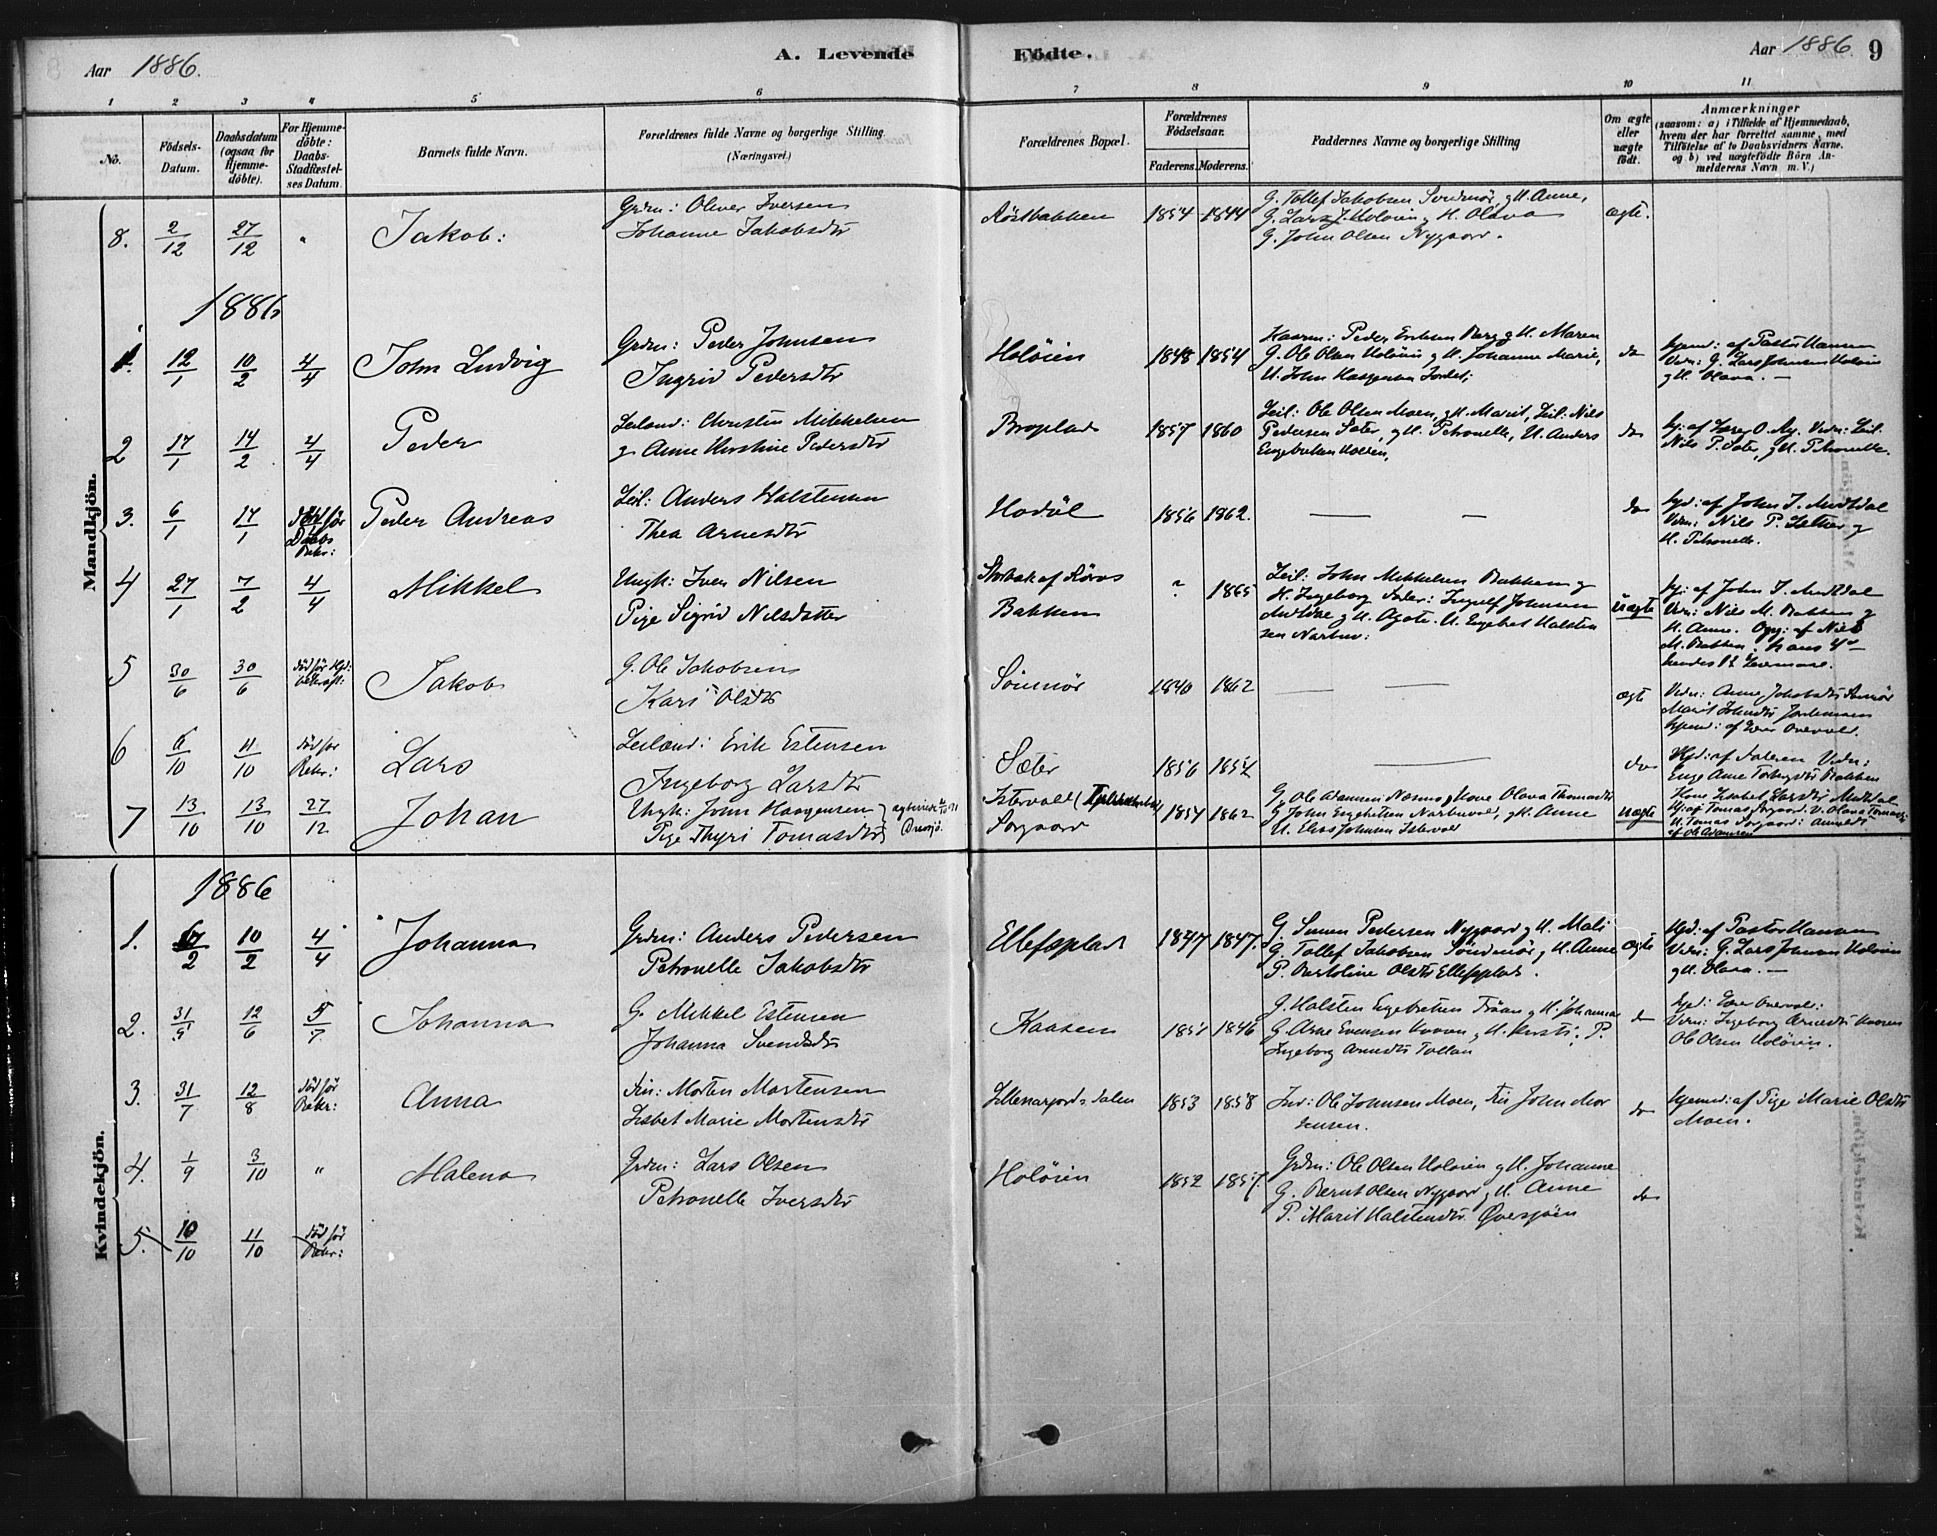 Aar 1886.
A. Levende
Födte.
Aar 1886 9
1 2 3 4 5 6 7 8 9 10 11
No.
Födsels-
Datum.
Daabsdatum
(ogsaa for
Hjemme-
döbte).
For Hjemme-
döbte:
Daabs-
Stadfæstel-
ses Datum.
Barnets fulde Navn.
Forældrenes fulde Navne og borgerlige Stilling.
(Næringsvei.)
Forældrenes Bopæl.
Forældrenes
Födselsaar.
Faderens. Moderens.
Faddernes Navne og borgerlige Stilling
Om ægte
eller
uægte
födt.
Anmærkninger
(saasom: a) i Tilfælde af Hjemmedaab,
hvem der har forrettet samme, med
Tilföielse af to Daabsvidners Navne.
og b) ved uægtefödte Börn An-
melderens Navn m. V.)
Mandkjön.
8. 2/12 27/12 " Jakob:
Grdm: Oliver Iversen
Johanne Jakobsdtr
Röstbakken 1854 1844
G. Tollef Jakobsen Sundmör, g H. Anne,
G. Lars J. Holöien g H. Olava
G. John Olsen Nygaard.
ægte.
1886
1. 12/1 10/2 4/4 John Ludvig
Grdm: Peder Johnsen
Ingrid Pedersdtr
Holöien 1848 1854
Kaarm: Peder Eriksen Berg g H. Maren
G. Ole Olsen Holöien g H. Johanne Marie,
U. John Haagensen Jordet;
do
Hjemd: af Pastor Hansen
Vidn: G. Lars Johnsen Holöien
g H. Olava. —
2 17/1 14/2 4/4 Peder
Leiland: Christen Mikkelsen
g Anne Kirstine Pedersdtr
Broplads 1857 1860
Leil: Ole Olsen Moen, g H. Marit, Leil: Nils
Pedersen Sæter, g H. Petronelle, U. Anders
Engebretsen Holden,
do
Nils P. Sæter, g H. Petronelle.
3. 6/1 17/1 död för
Daabs
Bekr:
Peder Andreas
Leil: Anders Halstensen
Thea Arnesdtr
Hodöl 1856 1862. — —
do
Hjd: af John I. Midtdal
Vidn: Nils P. Sæther g
H. Petronelle.
4 27/1 7/2 4/4 Mikkel
Ungk: Iver Nilsen
Pige Sigrid Nilsdatter
Storbak af Röros
Bakken
? 1865
Leil: John Mikkelsen Bakken g
H. Ingeborg Inder: Ingulf Johnsen
Midtdal g H. Agate. U. Engebret Halsten
sen Narbu:
uægte
Hj: af John I. Midtdal
Vidn: Nils M. Bakken g
H. Anne. Opg: af Nils
M. Bakken. hans 4de
hendes 1ste Leiermaal.
5 30/6 30/6 död för Hjd:
bekræft:
Jakob
G. Ole Jakobsen
Kari Olsdtr
Sömmör 1840 1862 — —
ægte
Vidn: Anne Jakobsdtr Sömör
Marit Johnsdtr Jordemoen
Hjemd: af Eier Overvold.
6 6/10 11/10 död for
Bekr:
Lars
Leiland: Erik Estensen
Ingeborg Larsdtr
Sæter 1856 1857 —
do
Hjd: af Faderen Vidn:
Enge Anne Torbersdtr Bakken
7 13/10 13/10 27/12 Johan
Ungk: John Haagensen
Pige Thyri Tomasdtr
Istervold
Sorgaard
1854 1862
G. Ole Adamsen Næsmo g Kone Olava Thomasdtr
G John Engebretsen Narbuvold, g H. Anne
U. Elias Johnsen Istervold
uægte
Kone Lisbet Larsdtr Midtdal
Hj: af Tomas Sorgaard V. Olava Tomasdtr
U. Tomas Sorgaard: Anmeldt
af Ole Adamsen
Kvindekjön.
1886
1. 6/2 10/2 4/4 Johanna
Grdm: Anders Pedersen
Petronelle Jakobsdtr
Ellefsplads 1847 1847.
G. Simen Pedersen Nygaard g H. Mali
G. Tollef Jakobsen Söndmör g H. Anne
P. Bertoline Olsdtr Ellefsplads.
ægte
Hjd: af Pastor Hansen
Vidn: G. Lars Johnsen Holöien
g H. Olava. —
2. 31/5 12/6 5/7 Johanna
G. Mikkel Estensen
Johanna Svendsdtr
Kaasen 1851 1846
G. Halsten Engebretsen Tröan g H. Johanna
G. Arne Evensen Kroken g H. Kirsti; P.
Ingeborg Arnesdtr Tollan
do
Hjd: Eier Overvold:
Vidn: Ingeborg Arnesdtr Kaasen
Ole Olsen Holöien.
3. 31/7 12/8 död för
Bekr:
Anna
Morten Mortensen
Lisbet Marie Mortensdtr
Lillenarjords Dalen 1853 1858
Ind: Ole Johnsen Moen, John Mor
tensen.
do
Hjemmed: af Pige Marie Olsdtr
Moen.
4. 1/9 3/10 " Malena
Grdm: Lars Olsen
Petronelle Iversdtr
Holöien 1852 1857.
Grdm: Ole Olsen Holöien g H. Johanne
G. Bernt Olsen Nygaard g H. Anne
P. Marit Halstensdtr Översjöen
do
5. 10/10 11/10 död för
Bekr: